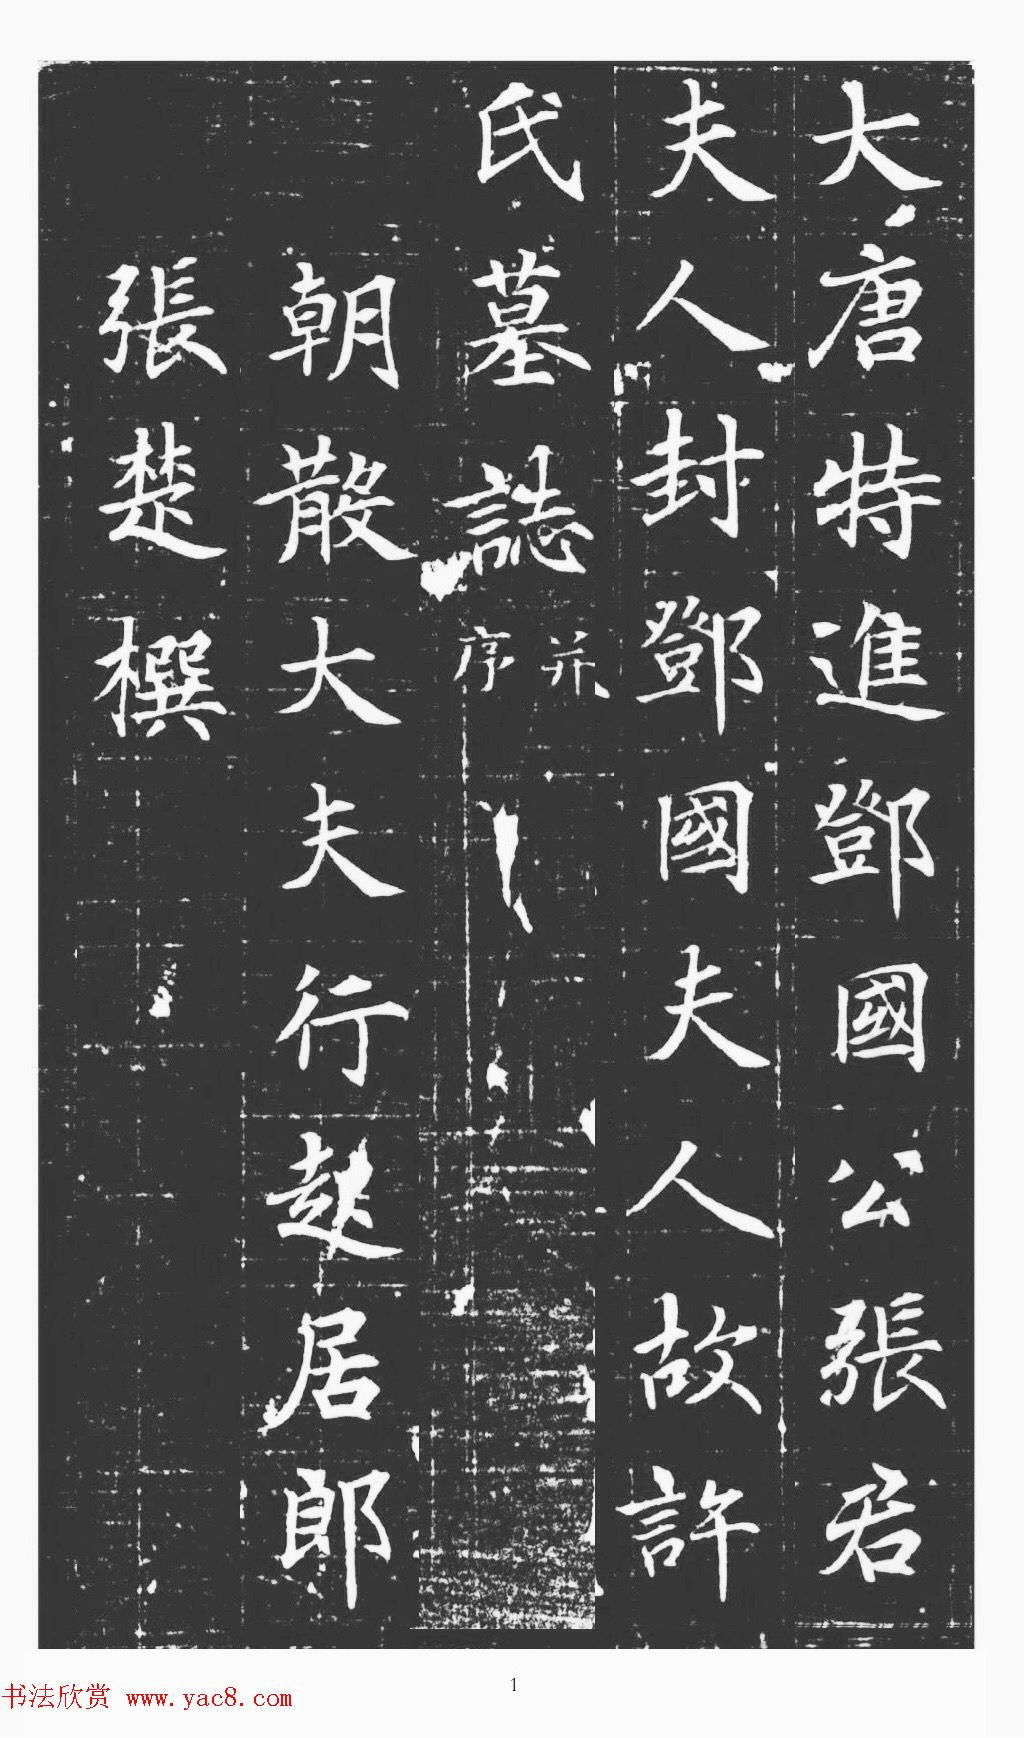 大唐特進鄧國公張君
夫人封鄧國夫人故許
氏墓誌并序
朝散大夫行起居郎
張楚撰
1
书法欣赏 www.yac8.com